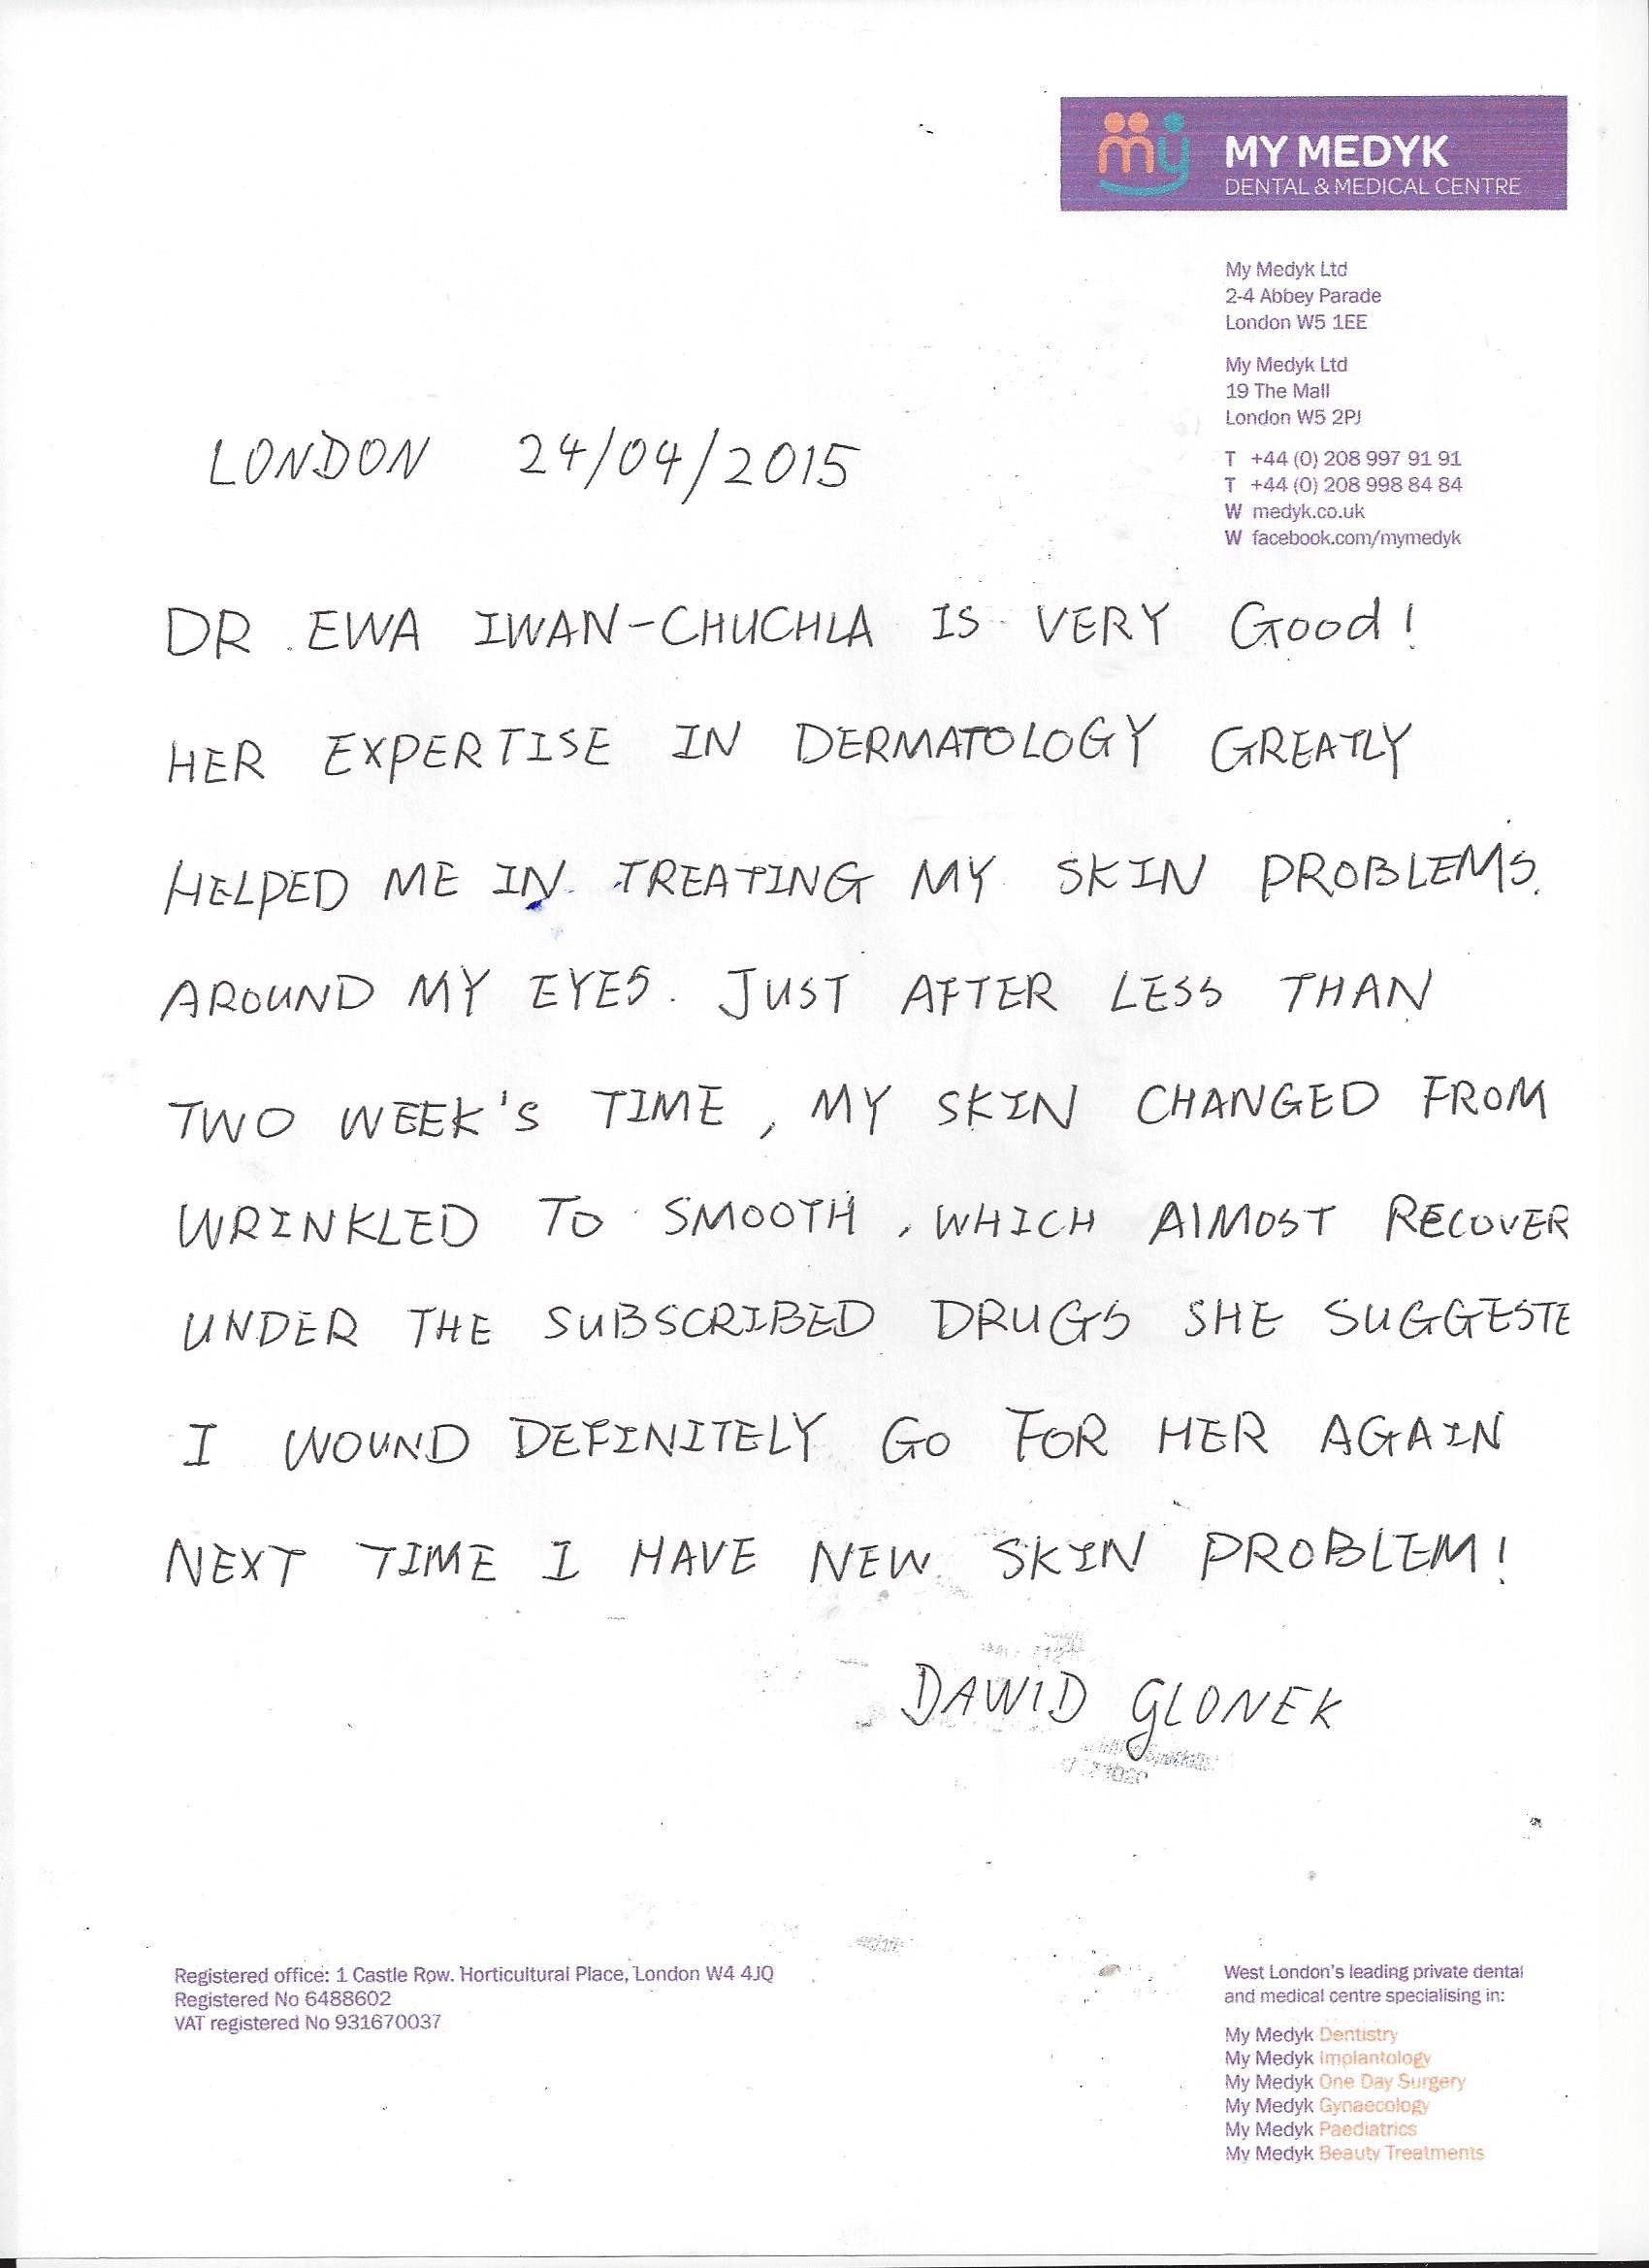 my MY MEDYK
DENTAL & MEDICAL CENTRE
My Medyk Ltd
2-4 Abbey Parade
London W5 1EE
My Medyk Ltd
19 The Mall
London W5 2PJ
T +44 (0) 208 997 91 91
T +44 (0) 208 998 84 84
W medyk.co.uk
W facebook.com/mymedyk
LONDON 24/04/2015
DR. EWA IWAN-CHUCHLA IS VERY Good!
HER EXPERTISE IN DERMATOLOGY GREATLY
HELPED ME IN TREATING MY SKIN PROBLEMS.
AROUND MY EYES. JUST AFTER LESS THAN
TWO WEEK'S TIME, MY SKIN CHANGED FROM
WRINKLED TO SMOOTH, WHICH AlMOST RECOVER
UNDER THE SUBSCRIBED DRUGS SHE SUGGESTE
I WOUND DEFINITELY GO FOR HER AGAIN
NEXT TIME I HAVE NEW SKIN PROBLEM!
DAWID GLONEK
Registered office: 1 Castle Row. Horticultural Place, London W4 4JQ
Registered No 6488602
VAT registered No 931670037
West London's leading private dental
and medical centre specialising in:
My Medyk Dentistry
My Medyk Implantology
My Medyk One Day Surgery
My Medyk Gynaecology
My Medyk Paediatrics
My Medyk Beauty Treatments